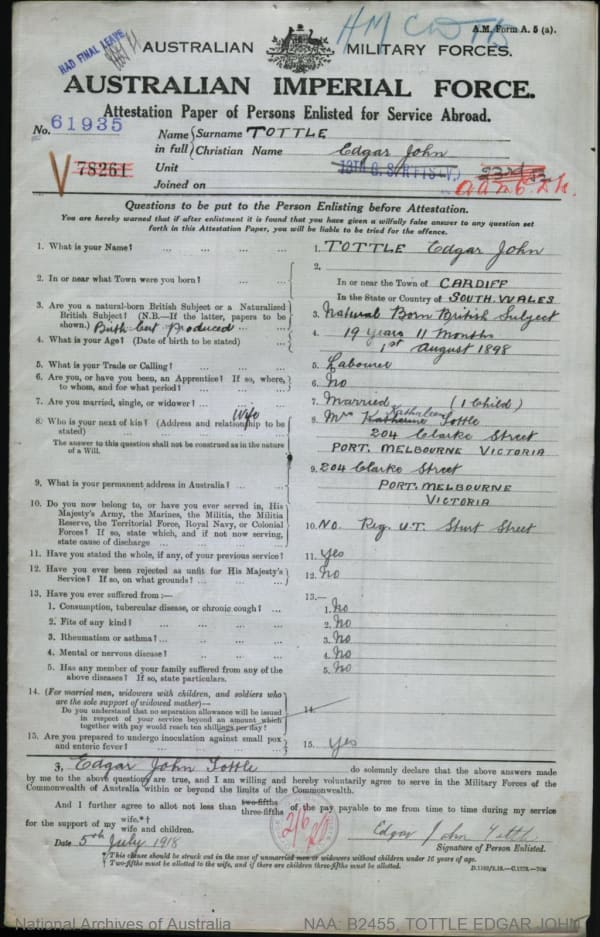 HAD FINAL LEAVE
A.M. Form A. 5 (a).
AUSTRALIAN MILITARY FORCES.
AUSTRALIAN IMPERIAL FORCE.
Attestation Paper of Persons Enlisted for Service Abroad.
No. 61935
Name in full { Surname TOTTLE
Christian Name Edgar John
V 78261
Unit
Joined on
Questions to be put to the Person Enlisting before Attestation.
You are hereby warned that if after enlistment it is found that you have given a wilfully false answer to any question set
forth in this Attestation Paper, you will be liable to be tried for the offence.
1. What is your Name? ... 1. TOTTLE Edgar John
2. In or near what Town were you born? ... 2. In or near the Town of CARDIFF
In the State or Country of SOUTH WALES
3. Are you a natural-born British Subject or a Naturalized
British Subject? (N.B.—If the latter, papers to be
shown.) Birth Cert Produced ... 3. Natural Born British Subject
4. What is your Age? (Date of birth to be stated) ... 4. 19 years 11 Months
1st August 1898
5. What is your Trade or Calling? ... 5. Labourer
6. Are you, or have you been, an Apprentice? If so, where,
to whom, and for what period? ... 6. No
7. Are you married, single, or widower? ... 7. Married (1 Child)
Wife
8. Who is your next of kin? (Address and relationship to be
stated) ... 8. Mrs Katherine Kathaleen Tottle
The answer to this question shall not be construed as in the nature
of a Will.
204 Clarke Street
PORT. MELBOURNE VICTORIA
9. What is your permanent address in Australia? ... 9. 204 Clarke Street
PORT. MELBOURNE
VICTORIA
10. Do you now belong to, or have you ever served in, His
Majesty's Army, the Marines, the Militia, the Militia
Reserve, the Territorial Force, Royal Navy, or Colonial
Forces? If so, state which, and if not now serving,
state cause of discharge ... 10. No. Reg. U.T. Sturt Street
11. Have you stated the whole, if any, of your previous service? 11. Yes
12. Have you ever been rejected as unfit for His Majesty's
Service? If so, on what grounds? ... 12. No
13. Have you ever suffered from :— 13.—
1. Consumption, tubercular disease, or chronic cough? ... 1. No
2. Fits of any kind? ... 2. No
3. Rheumatism or asthma? ... 3. No
4. Mental or nervous disease? ... 4. No
5. Has any member of your family suffered from any of the
above diseases? If so, state particulars. 5. No
14. (For married men, widowers with children, and soldiers who
are the sole support of widowed mother)—
Do you understand that no separation allowance will be issued
in respect of your service beyond an amount which
together with pay would reach ten shillings per day? 14.
15. Are you prepared to undergo inoculation against small pox
and enteric fever? ... 15. Yes
I, Edgar John Tottle do solemnly declare that the above answers made
by me to the above questions are true, and I am willing and hereby voluntarily agree to serve in the Military Forces of the
Commonwealth of Australia within or beyond the limits of the Commonwealth.
And I further agree to allot not less than two-fifths three-fifths of the pay payable to me from time to time during my service
for the support of my wife.*†
wife and children.
Date 5th July 1918
Edgar John Tottle
Signature of Person Enlisted.
* This clause should be struck out in the case of unmarried men or widowers without children under 16 years of age.
† Two-fifths must be allotted to the wife, and if there are children three-fifths must be allotted.
National Archives of Australia
NAA: B2455, TOTTLE EDGAR JOHN